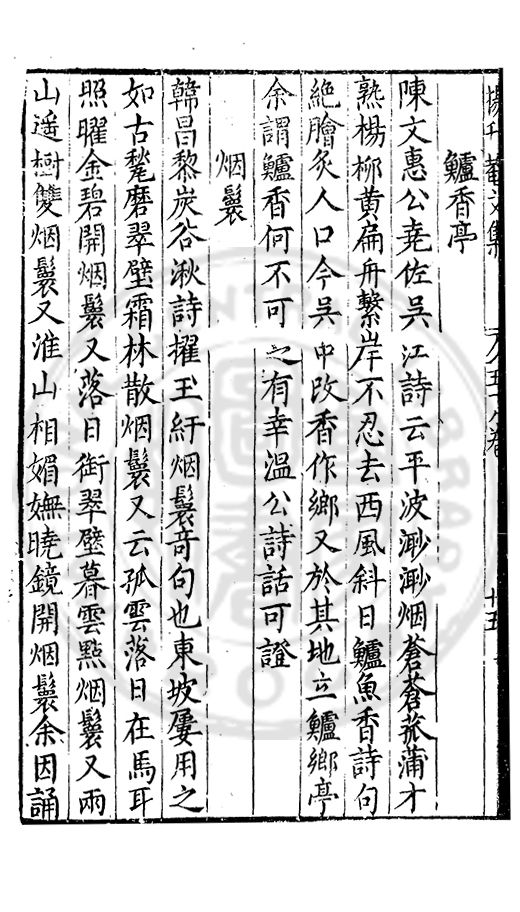 鱸香亭
陳文惠公堯佐吳江詩云平波渺渺烟蒼蒼菰蒲才
熟楊柳黄扁舟繫岸不忍去西風斜日鱸魚香詩句
絶膾炙人口今吳中改香作鄉又於其地立鱸鄉亭
余謂鱸香何不可之有幸溫公詩話可證
烟鬟
韓昌黎炭谷湫詩擢玉紆烟鬟竒句也東坡屢用之
如古甃磨翠壁霜林散烟鬟又云孤雲落日在馬耳
照曜金碧開烟鬟又落日銜翠壁暮雲㸃烟鬟又兩
山遥樹雙烟鬟又淮山相媚嫵曉鏡開烟鬟余因誦